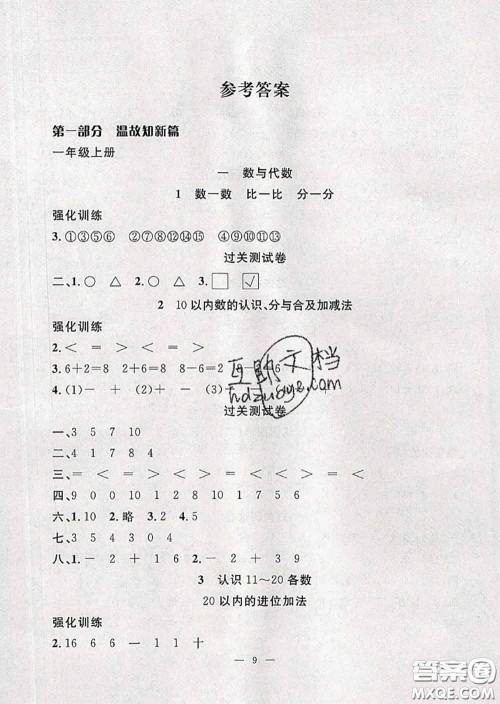 参考答案
第一部分 温故知新篇
一年级上册
一 数与代数
1 数一数 比一比 分一分
强化训练
3.①③⑤⑥ ②⑦⑫⑭⑮ ④⑧⑨⑩⑪⑬
过关测试卷
二、1.○ △ 2.○ △ 3.□ ☑
2 10以内数的认识、分与合及加减法
强化训练
2.< = > < = >
3.6+2=8 2+6=8 8-6=2
4.(1)- + (2)- + (3)-
互助文档
hdzuoye.com
过关测试卷
一、3 5 7 10
三、= < > < = > < > < = = <
四、9 0 0 10 1 2 8 10 1 7 5 6
六、1.10 2.略 3.2 4.5
七、3 5 4 3 0 1
八、1.- 2 + 1 6 2.- 2 + 3 9
3 认识11~20各数
20以内的进位加法
强化训练
2.16 6 6 一 1 1 十
— 9 —
答案圈
MXQE.COM